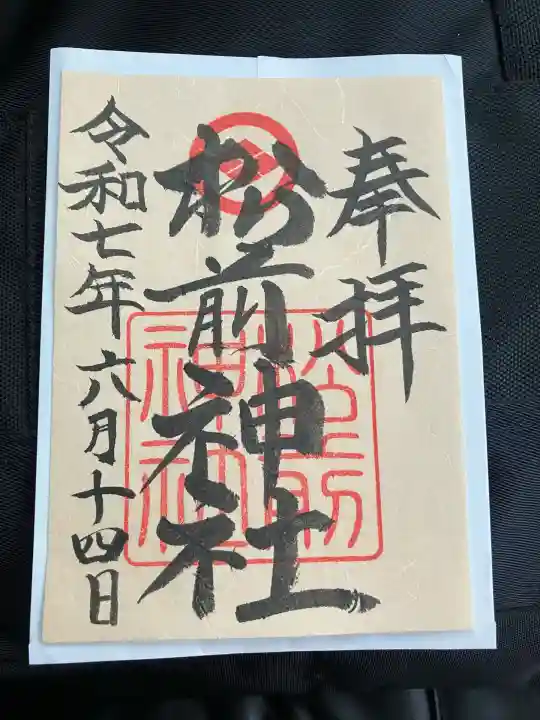 奉拝
松前神社
令和七年六月十四日
松前
神社